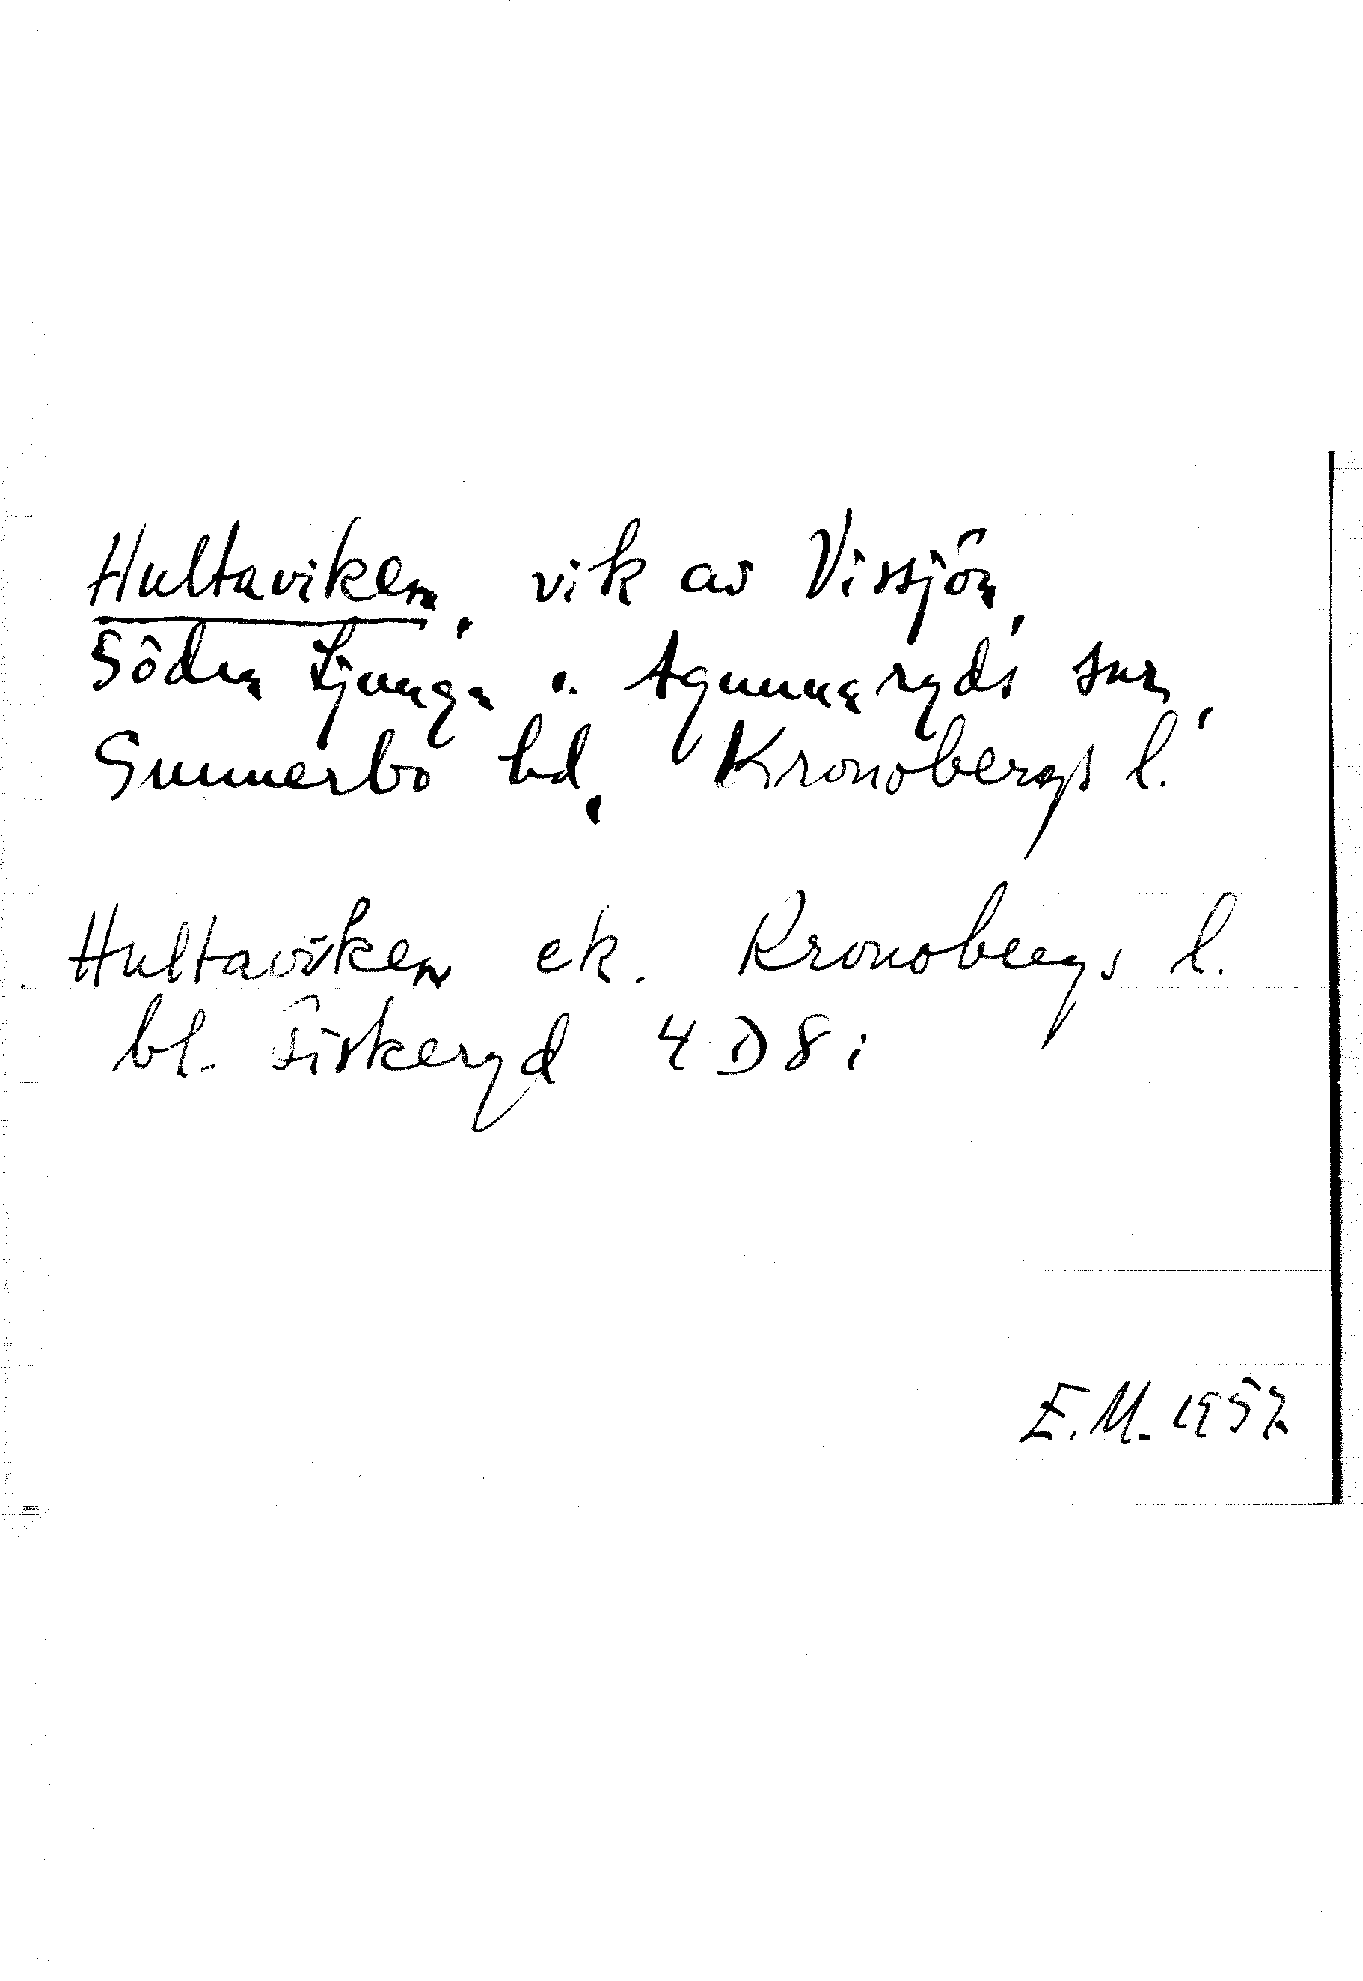 Hultaviken, vik av Vissjön,
Södra Ljunga o. Agunnaryds snr,
Sunnerbo hd, Kronobergs l.
Hultaviken ek. Kronobergs l.
bl. Fiskeryd 4 D 8 i
E.M. 1957